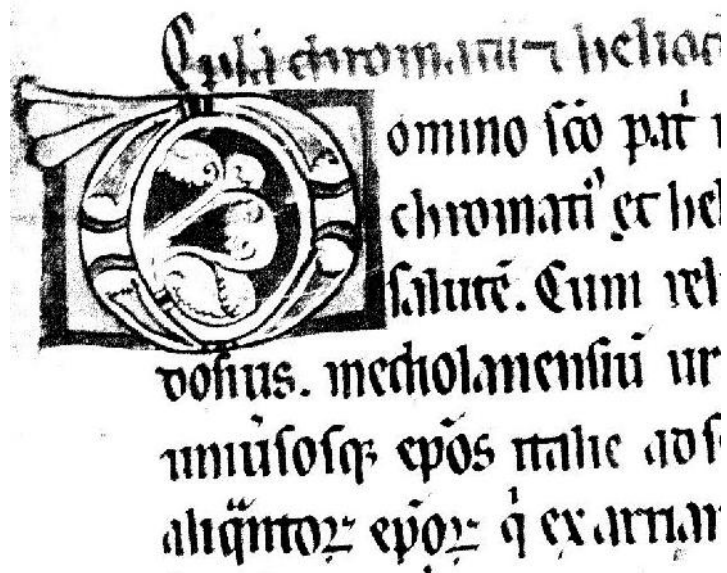 Epl̃a chromatii ⁊ heliod
Domino sc̃o pat̃
chromati' et hel
salutē. Cum rel
dosius. mechiolanensiū ur
uniũsosq; ep̃os italie ad
aliq̃ntoꝝ ep̃oꝝ q̇ ex arrian